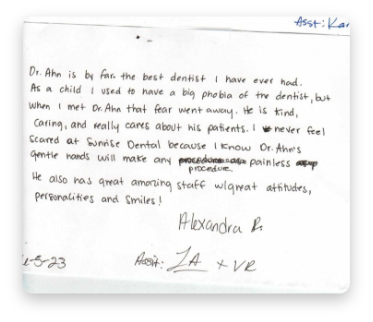 Asst: Kar
Dr. Ahn is by far the best dentist I have ever had.
As a child I used to have a big phobia of the dentist, but
when I met Dr. Ahn that fear went away. He is kind,
caring, and really cares about his patients. I never feel
scared at Sunrise Dental because I know Dr. Ahn's
gentle hands will make any painless
procedure.
He also has great amazing staff w/great attitudes,
personalities and smiles!
Alexandra R.
-5-23 Asst: LA + VR